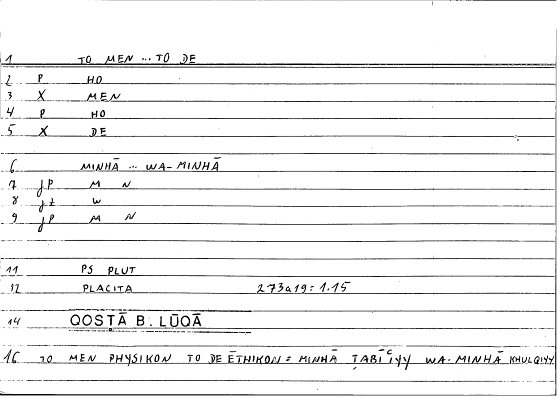 1 TO MEN ... TO DE
2 P HO
3 X MEN
4 P HO
5 X DE
6 MINHĀ ... WA-MINHĀ
7 jP M N
8 jt W
9 jP M N
11 PS PLUT
12 PLACITA 273a19 = 1.15
14 QOSṬĀ B. LŪQĀ
16 TO MEN PHYSIKON TO DE ĒTHIKON = MINHĀ ṬABĪʿIYY WA-MINHĀ KHULQIYY